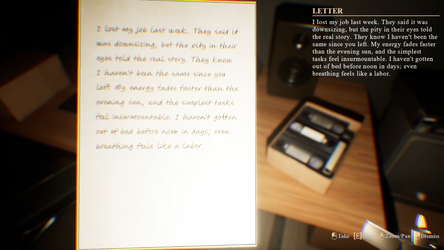 I lost my job last week. They said it
was downsizing, but the pity in their
eyes told the real story. They know
I haven't been the same since you
left. My energy fades faster than the
evening sun, and the simplest tasks
feel insurmountable. I haven't gotten
out of bed before noon in days; even
breathing feels like a labor.
LETTER
I lost my job last week. They said it was
downsizing, but the pity in their eyes told
the real story. They know I haven't been the
same since you left. My energy fades faster
than the evening sun, and the simplest
tasks feel insurmountable. I haven't gotten
out of bed before noon in days; even
breathing feels like a labor.
Take [E] Zoom/Pan Dismiss